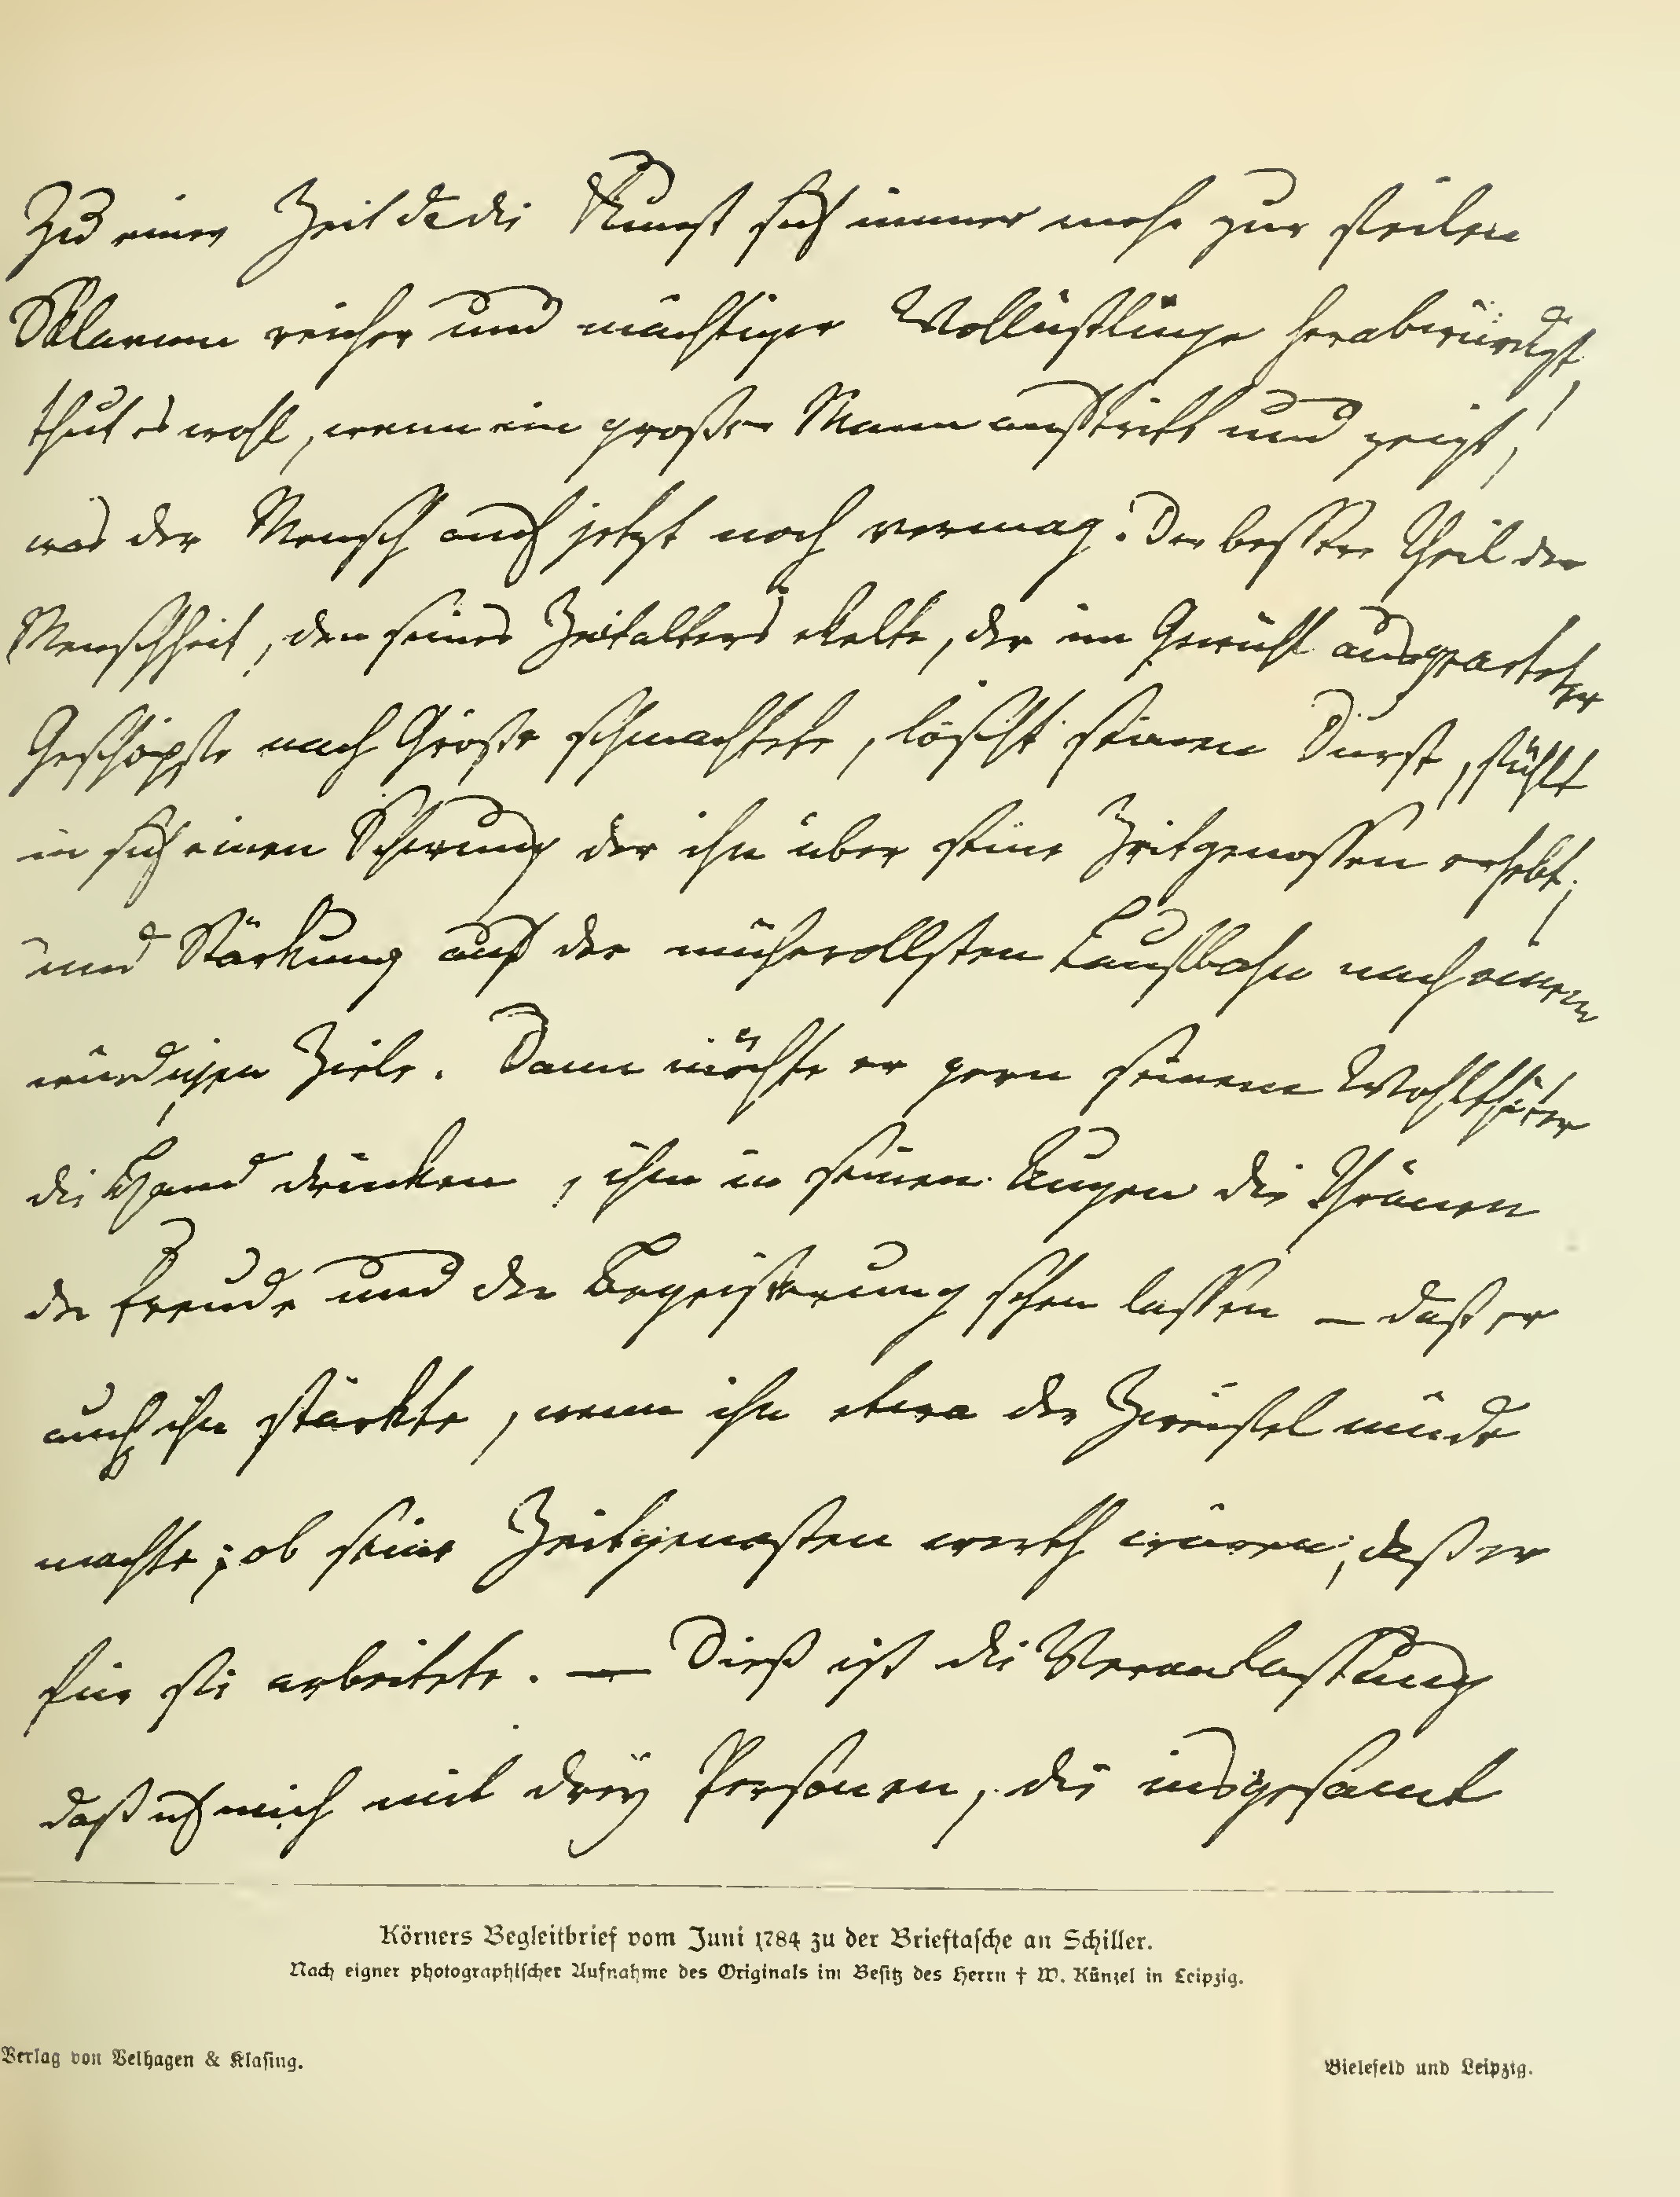 Zu einer Zeit da die Kunst sich immer mehr zur feilen
Sklavinn reicher und mächtiger Wollüstlinge herabwürdigt,
thut es wohl, wenn ein großer Mann auftritt und zeigt,
was der Mensch auch jetzt noch vermag. Der bessere Theil der
Menschheit, den seines Zeitalters ekelte, der im Gewühl ausgearteter
Geschöpfe nach Größe schmachtete, löscht seinen Durst, fühlt
in sich einen Schwung der ihn über seine Zeitgenossen erhebt,
und Stärkung auf der mühevollsten Laufbahn nach einem
würdigen Ziele. Dann möchte er gern seinem Wohlthäter
die Hand drücken, ihn in seinen Augen die Thränen
der Freude und der Begeisterung sehen lassen — daß er
auch ihn stärkte, wenn ihn etwa der Zweifel müde
machte, ob seine Zeitgenossen werth wären, daß er
für sie arbeitete. — Dieß ist die Veranlassung
daß ich mich mit drey Personen, die insgesamt
Körners Begleitbrief vom Juni 1784 zu der Brieftasche an Schiller.
Nach eigner photographischer Aufnahme des Originals im Besitz des Herrn † W. Künzel in Leipzig.
Verlag von Velhagen & Klasing. Bielefeld und Leipzig.